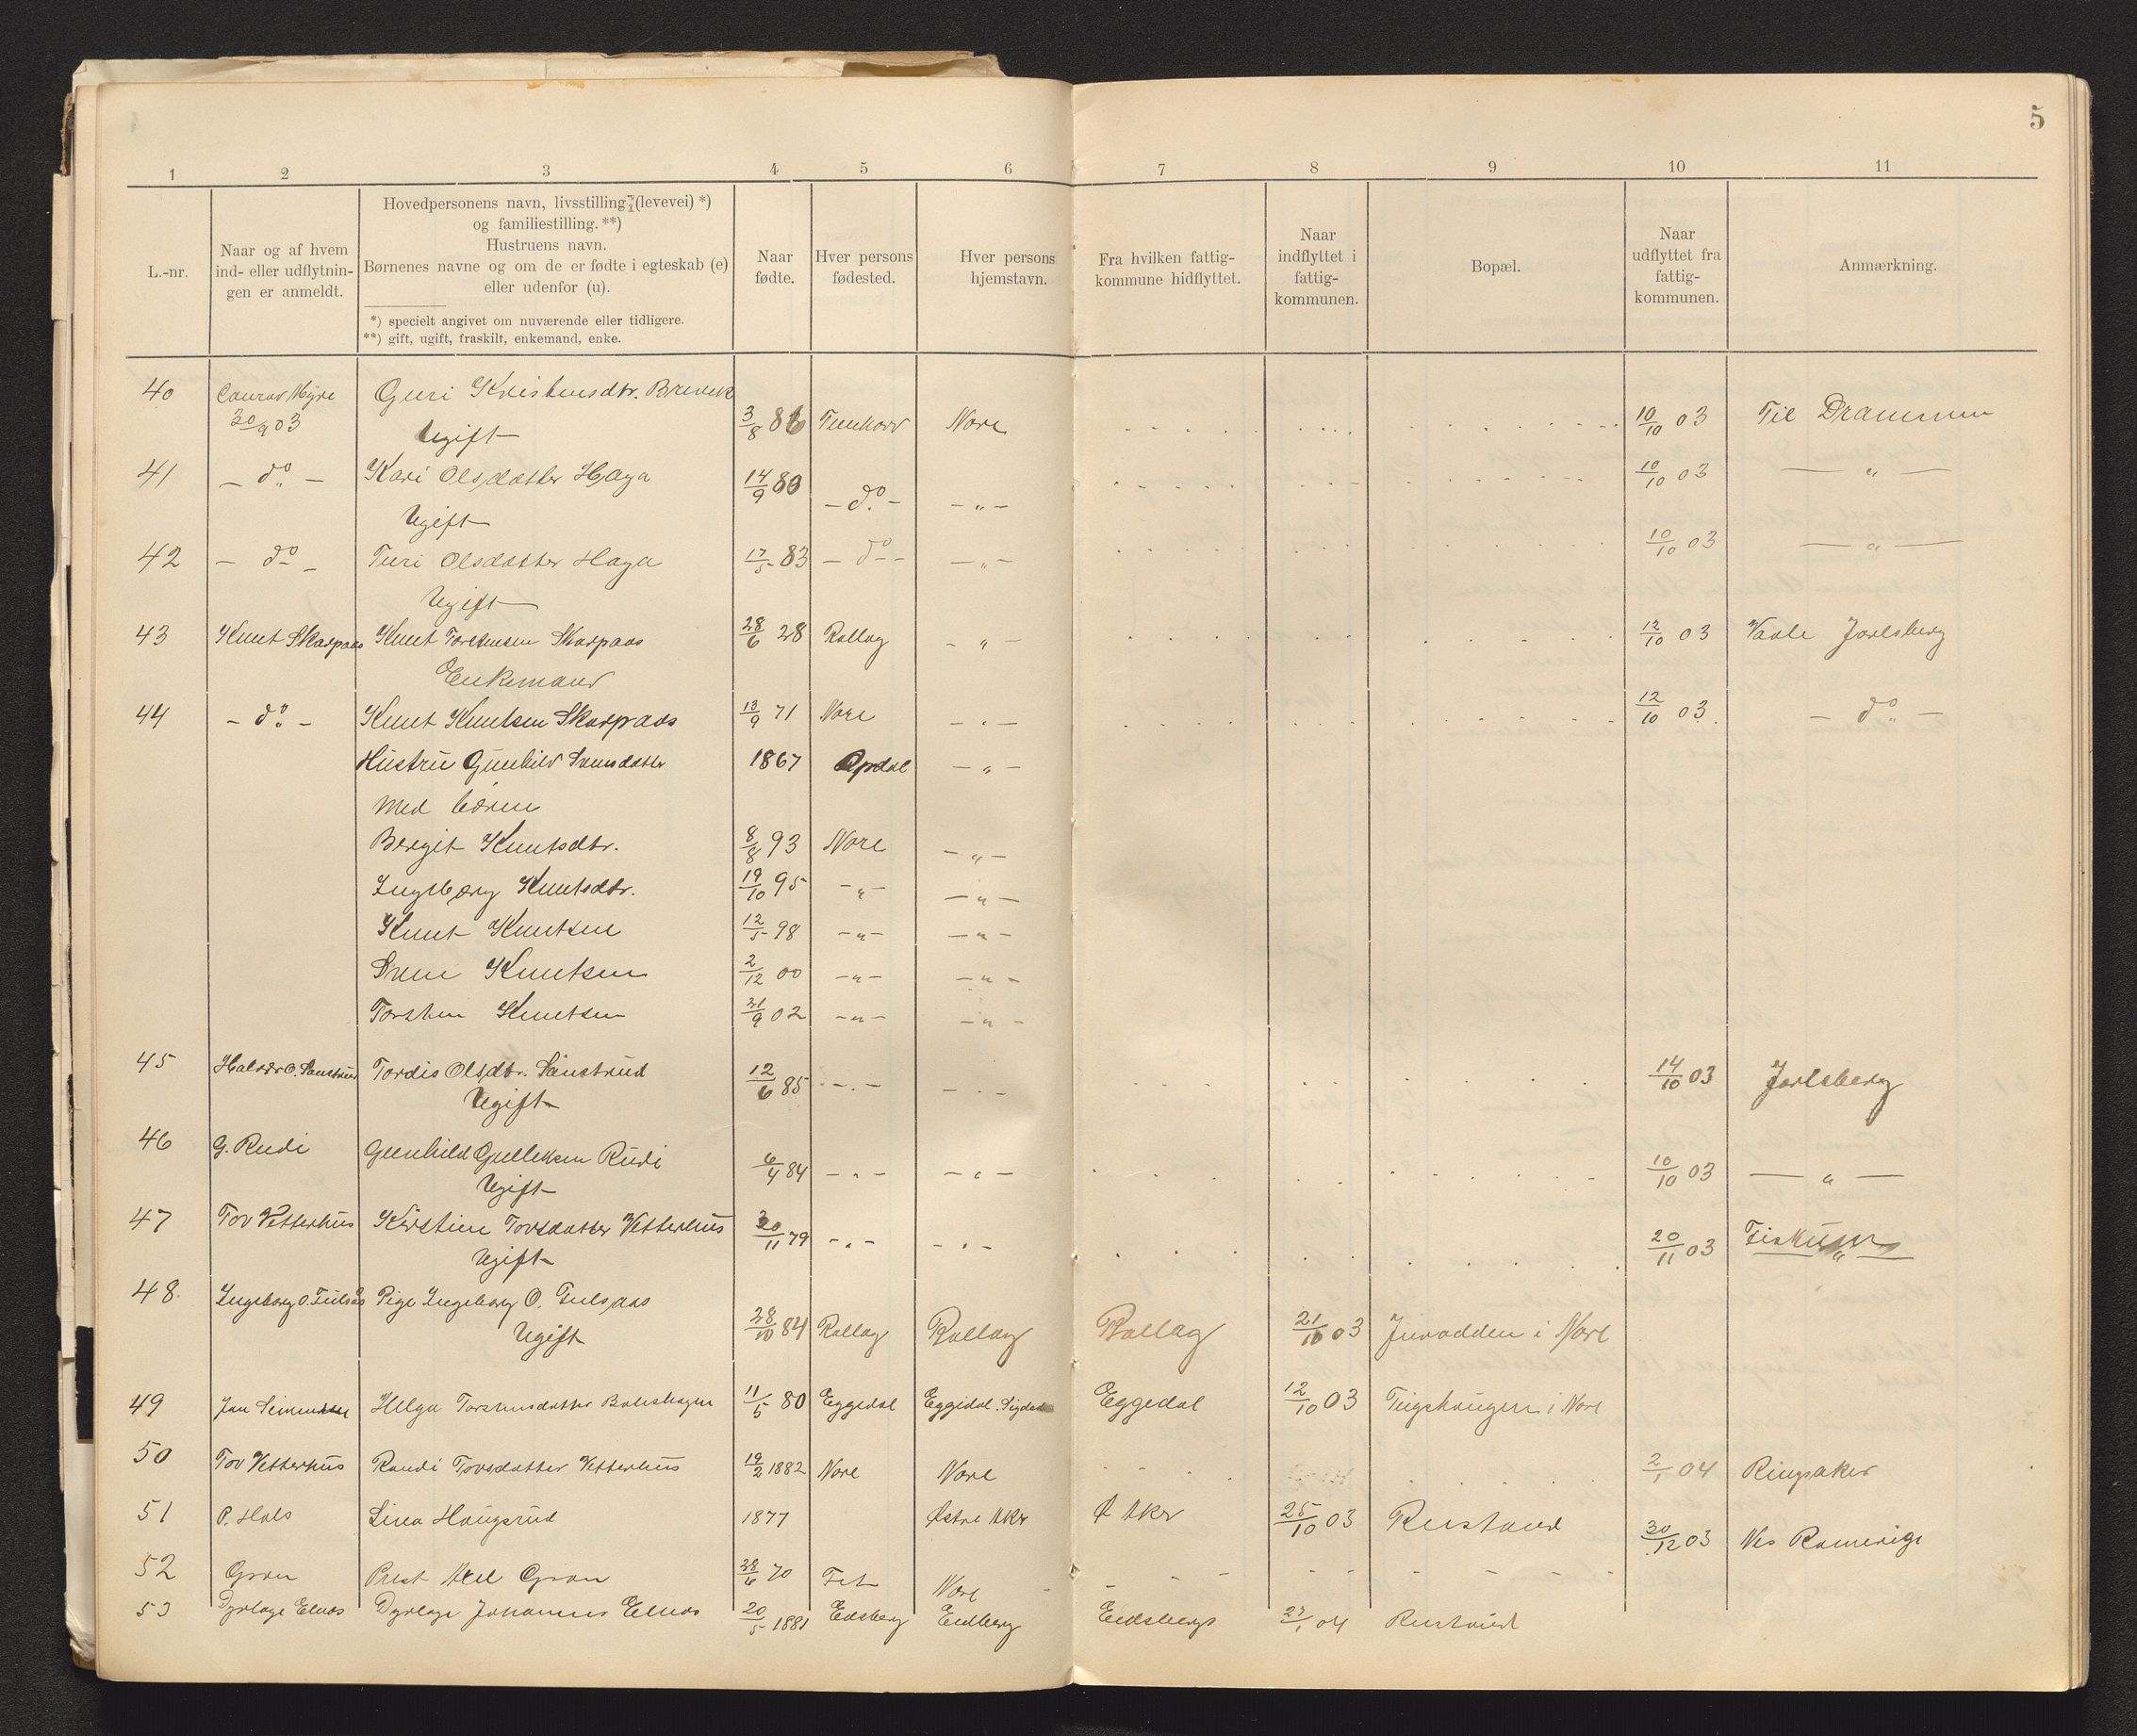 5
1 2 3 4 5 6 7 8 9 10 11
L.-nr.
Naar og af hvem
ind- eller udflytnin-
gen er anmeldt.
Hovedpersonens navn, livsstilling (levevei) *)
og familiestilling. **)
Hustruens navn.
Børnenes navne og om de er fødte i egteskab (e)
eller udenfor (u).
*) specielt angivet om nuværende eller tidligere.
**) gift, ugift, fraskilt, enkemand, enke.
Naar
fødte.
Hver persons
fødested.
Hver persons
hjemstavn.
Fra hvilken fattig-
kommune hidflyttet.
Naar
indflyttet i
fattig-
kommunen.
Bopæl.
Naar
udflyttet fra
fattig-
kommunen.
Anmærkning.
40 Conrad Myre Guri Kristensdtr. Brevik
30/9 03 Ugift 3/8 86 Tunhovd Nore 10/10 03 Til Drammen
41 - do - Kari Olsdatter Haga 14/9 80 - do - - " - 10/10 03 - " -
Ugift
42 - do - Turi Olsdatter Haga 17/5 83 - do - - " - 10/10 03 - " -
Ugift
43 Knut Skarpaas Knut Torstensen Skarpaas 28/6 28 Rollag - " - 12/10 03 Vaale Jarlsberg
Enkemand
44 - do - Knut Knutsen Skarpaas 13/9 71 Nore - " - 12/10 03. - do -
Hustru Gunhild Svensdatter 1867 Opdal - " -
Med børn
Bergit Knutsdtr. 8/8 93 Nore - " -
Ingeborg Knutsdtr. 19/10 95 - " - - " -
Knut Knutsen 12/5 98 - " - - " -
Sven Knutsen 2/12 00 - " - - " -
Torsten Knutsen 21/9 02 - " - - " -
45 Halvor O. Sønstrud Tordis Olsdtr. Sønstrud 12/6 85 - " - - " - 14/10 03 Jarlsberg
Ugift
46 G. Rudi Gunhild Gulleksen Rudi 6/4 84 - " - - " - 10/10 03 - " -
Ugift
47 Tov Vetterhus Kirstine Tovsdatter Vetterhus 30/11 79 - " - - " - 20/11 03 Fiskum
Ugift
48. Ingeborg O. Fulsaas Pige Ingeborg O. Fulsaas
Ugift 28/10 84 Rollag Rollag Rollag 21/10 03 Juvodden i Nore
49 Jan Helga Torstensdatter 11/5 80 Eggedal Eggedal. Sigdal Eggedal 12/10 03 i Nore
50 Tov Vetterhus Randi Tovsdatter Vetterhus 19/2 1882 Nore Nore 2/1 04 Ringsaker
51 P. Hols Lina Haugsrud 1877 Østre Aker Ø Aker 25/10 03 Rustand 30/12 03 Nes Romerige
52 Grøn Prest Axel Grøn 28/6 70 Fet Nore
53 Dyrlæge Elnæs Dyrlæge Johannes Elnæs 20/5 1881 Edsberg Eidberg Eidsberg 27/1 04 Rustand